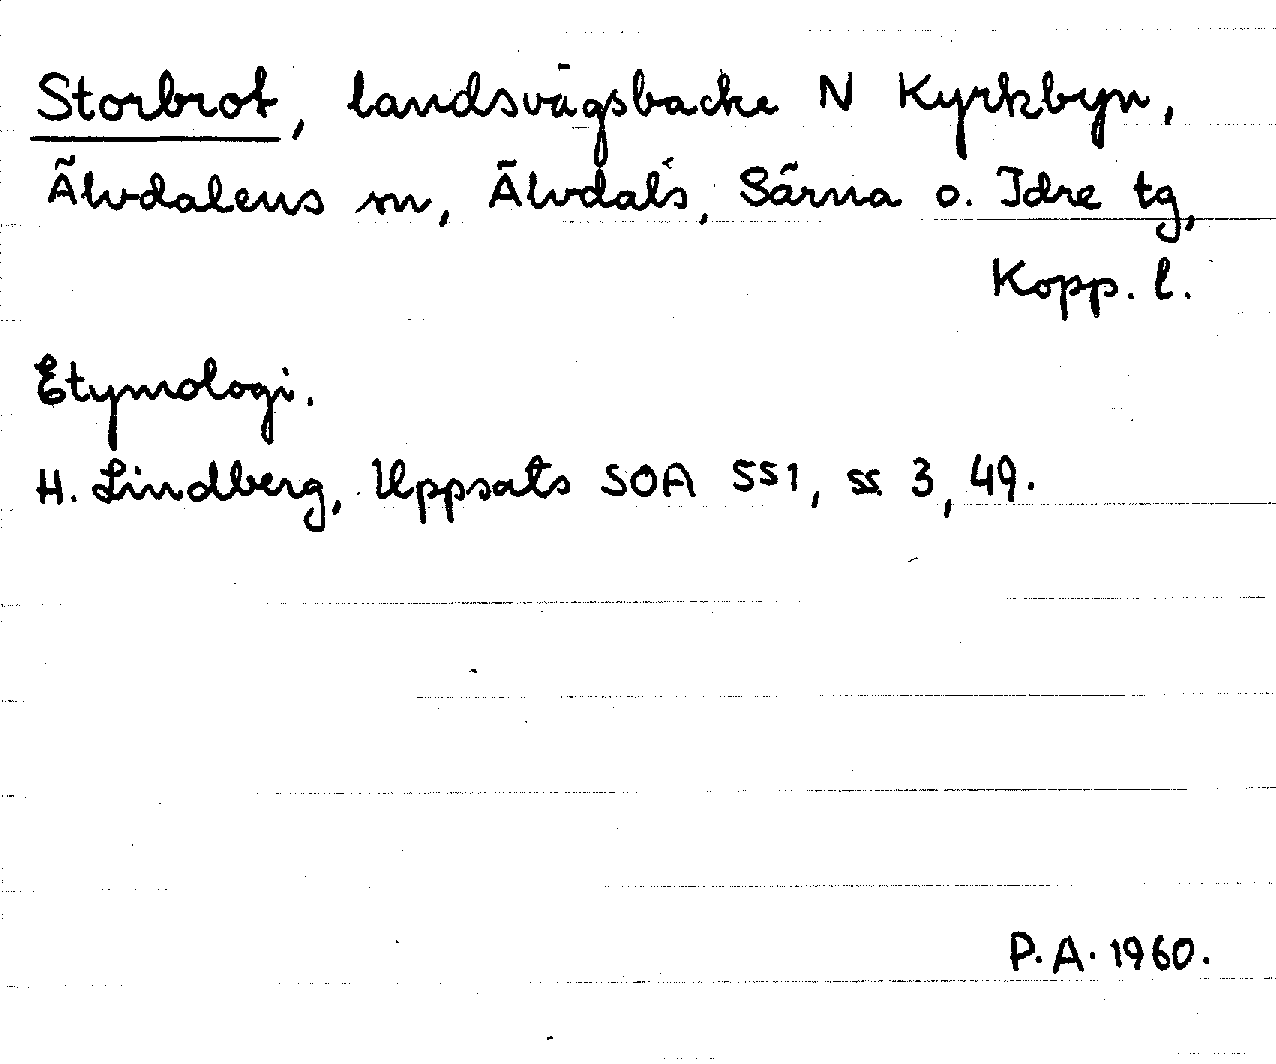 Storbrot, landsvägsbacke N Kyrkbyn,
Älvdalens sn, Älvdals, Särna o. Idre tg,
Kopp. l.
Etymologi.
H. Lindberg, Uppsats SOA 551, ss 3, 49.
P.A. 1960.